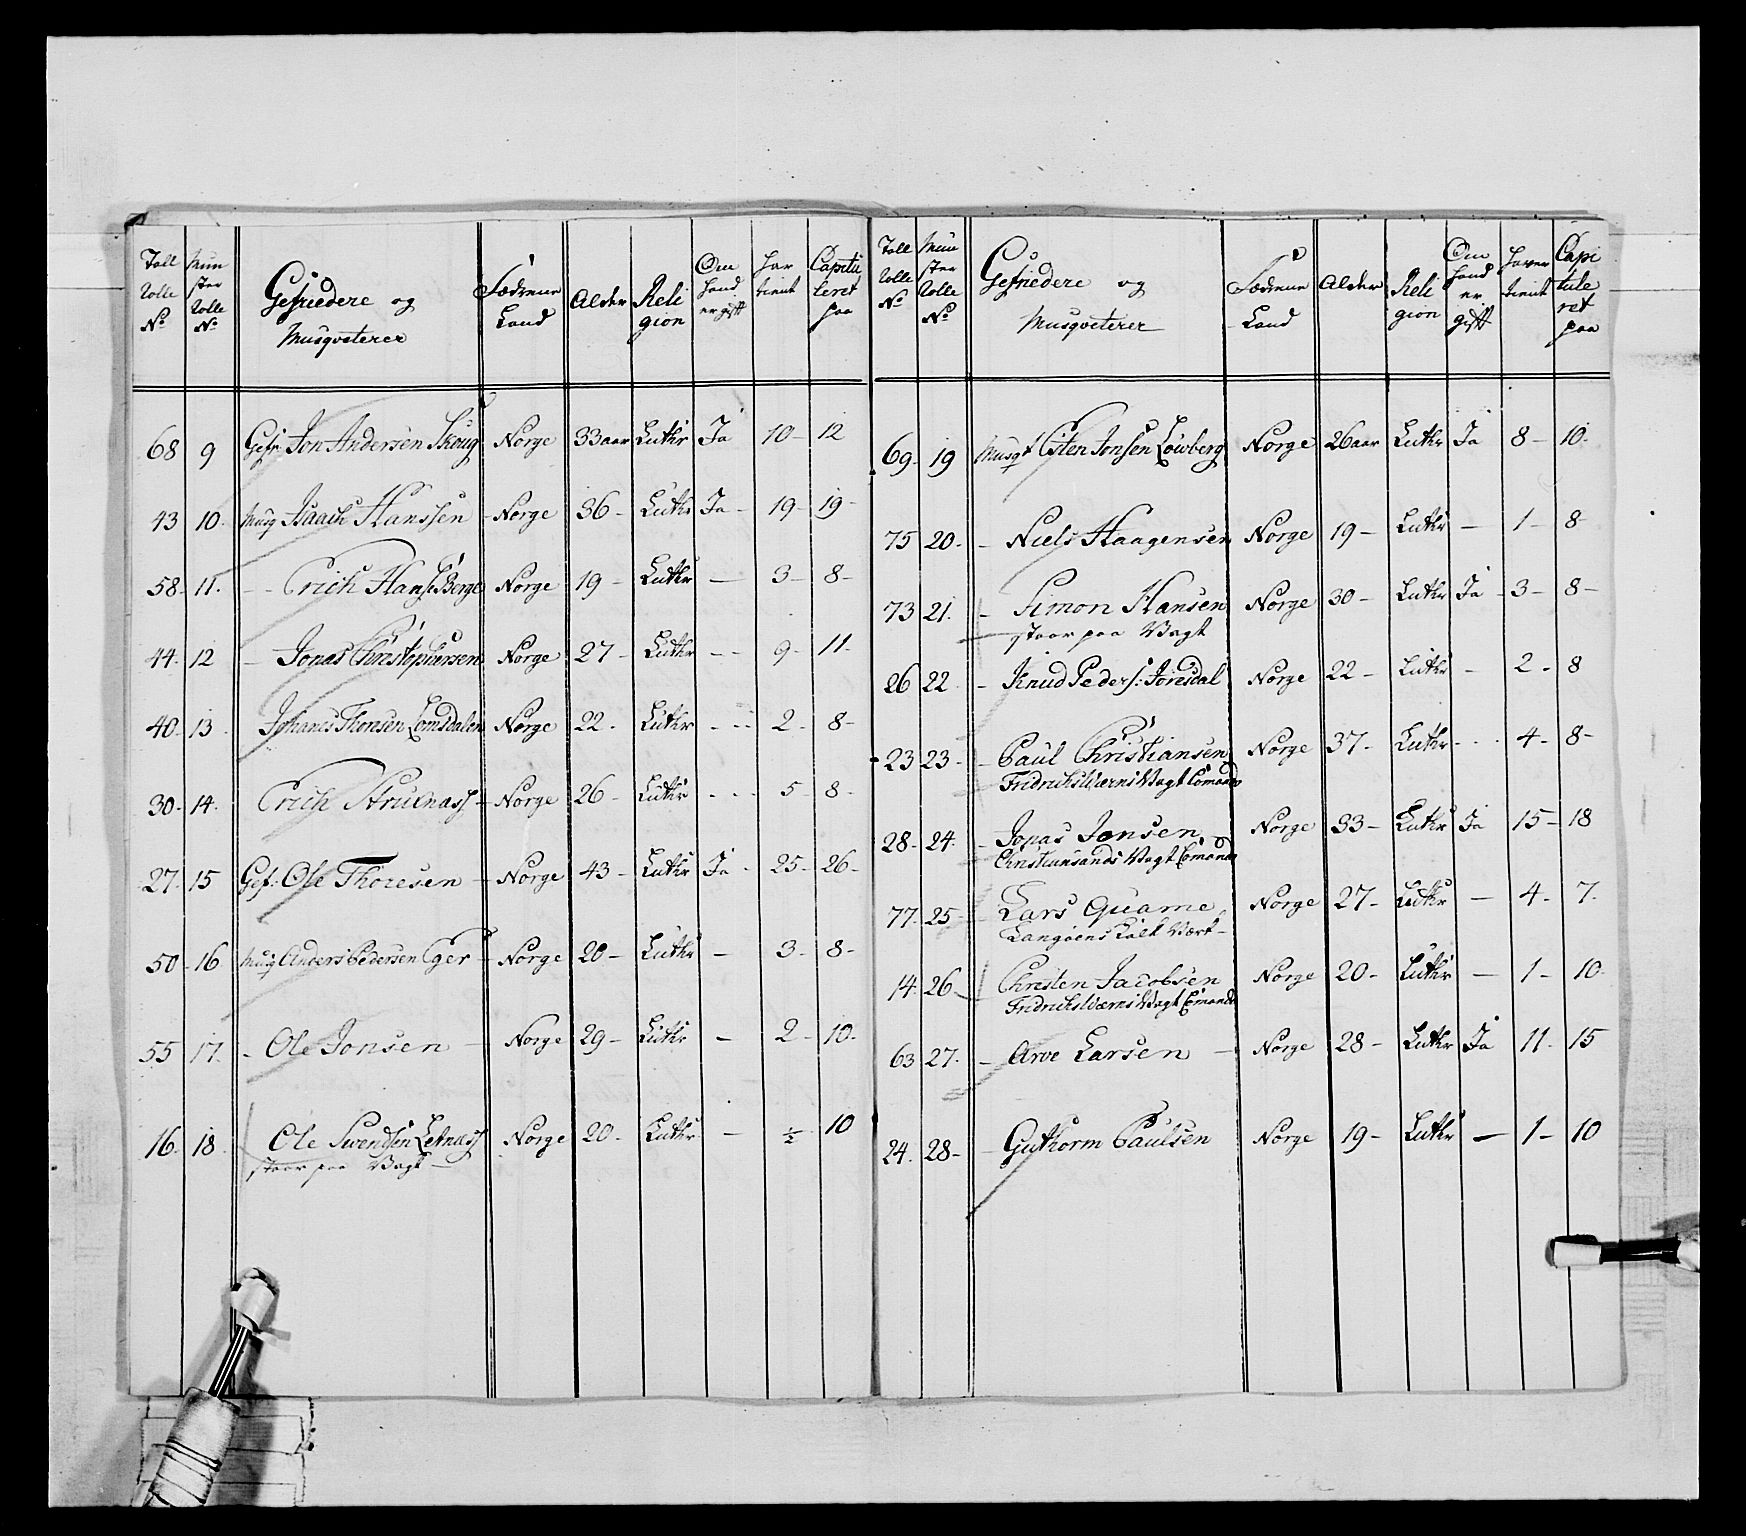 Tall Rolle No | Mun ster Rolle No | Gefriedere og Musqveterer | Fædrene Land | Alder | Reli gion | Om hand er gift | har tient | Capitu leret paa
68 | 9 | Gefr. Jon Andersen Skoug | Norge | 33 aar | Luthr | Ja | 10 | 12
43 | 10 | Musq Isaach Hanssen | Norge | 36 | Luthr | Ja | 19 | 19
58 | 11 | - Erich Hans: Berge | Norge | 19 | Luthr | - | 3 | 8
44 | 12 | - Jonas Christophersen | Norge | 27 | Luthr | - | 9 | 11
40 | 13 | Johanes Thonsen Lomsdalen | Norge | 22 | Luthr | - | 2 | 8
30 | 14 | Erich | Norge | 26 | Luthr | - | 5 | 8
27 | 15 | Gef: Ole Thoresen | Norge | 43 | Luthr | Ja | 25 | 26
50 | 16 | Musq Anders Pedersen Eger | Norge | 20 | Luthr | - | 3 | 8
55 | 17 | - Ole Jonsen | Norge | 29 | Luthr | - | 2 | 10
16 | 18 | Ole Swendsen | Norge | 20 | Luthr | - | ½ | 10
staar paa Vagt
Tall Rolle No | Mun ster Rolle No | Gefriedere og Musqveterer | Fædrene Land | Alder | Reli gion | Om hand er gift | haver tient | Capi tule ret paa
69 | 19 | Musqt Esten Jonsen Lowberg | Norge | 26 aar | Luthr | Ja | 8 | 10
75 | 20 | - Niels Haagensen | Norge | 19 | Luthr | - | 1 | 8
73 | 21 | - Simon Hansen | Norge | 30 | Luthr | Ja | 3 | 8
staar paa Vagt
26 | 22 | - Knud Peders: | Norge | 22 | Luthr | - | 2 | 8
23 | 23 | - Paul Christiansen | Norge | 37 | Luthr | - | 4 | 8
Fridrichsværns Vagt Comando
28 | 24 | - Jonas Jonsen | Norge | 33 | Luthr | Ja | 15 | 18
Christiansands Vagt Comando
77 | 25 | - Lars Quame | Norge | 27 | Luthr | - | 4 | 7
Langöens Kalk Værk
14 | 26 | Christen Jacobsen | Norge | 20 | Luthr | - | 1 | 10
Fridrichsværns Vagt Comando
63 | 27 | - Arve Larsen | Norge | 28 | Luthr | Ja | 11 | 15
24 | 28 | - Guthorm Paulsen | Norge | 19 | Luthr | - | 1 | 10